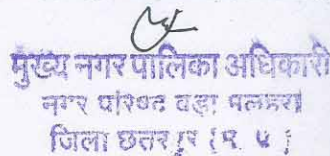 मुख्य नगर पालिका अधिकारी
नगर परिषद बड़ा मलहरा
जिला छतरपुर (म. प्र.)